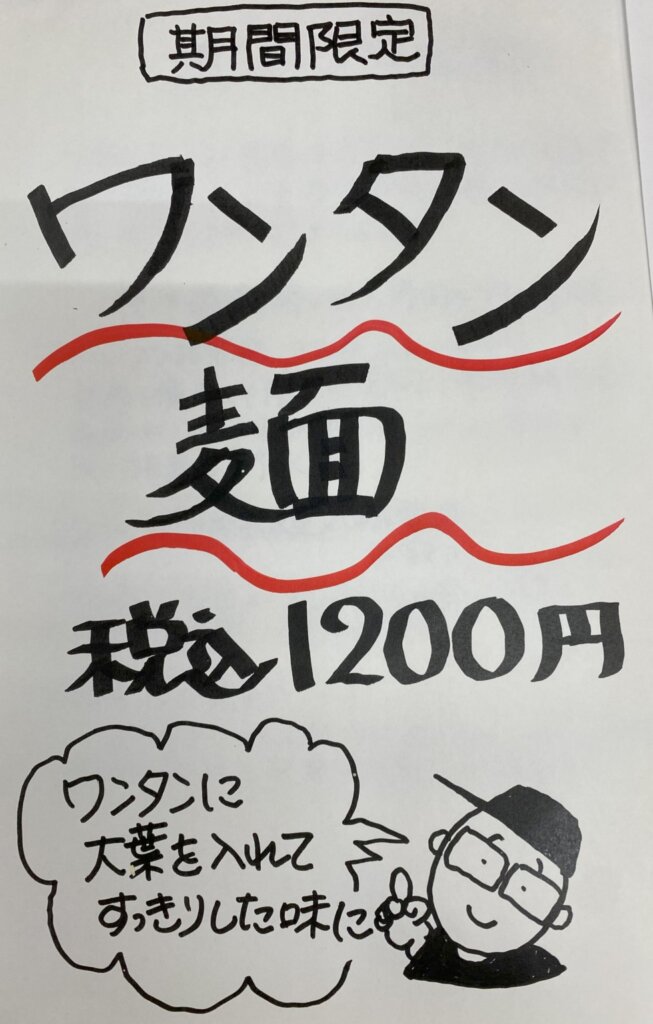 期間限定
ワンタン
麺
税込1200円
ワンタンに
大葉を入れて
すっきりした味に